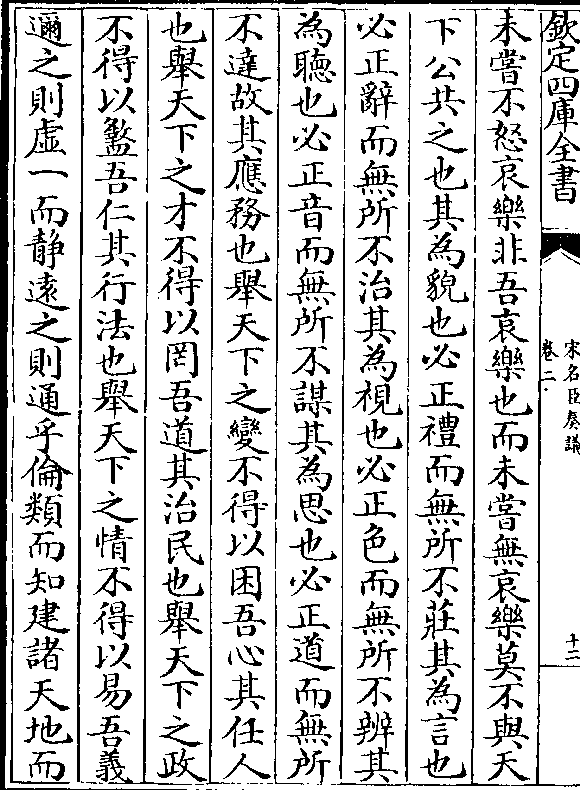 欽定四庫全書
宋名臣奏議
卷二
十二
未嘗不怒哀樂非吾哀樂也而未嘗無哀樂莫不與天
下公共之也其為貌也必正禮而無所不莊其為言也
必正辭而無所不治其為視也必正色而無所不辨其
為聴也必正音而無所不謀其為思也必正道而無所
不達故其應務也舉天下之變不得以困吾心其任人
也舉天下之才不得以罔吾道其治民也舉天下之政
不得以盭吾仁其行法也舉天下之情不得以易吾義
邇之則虛一而静遠之則通乎倫類而知建諸天地而